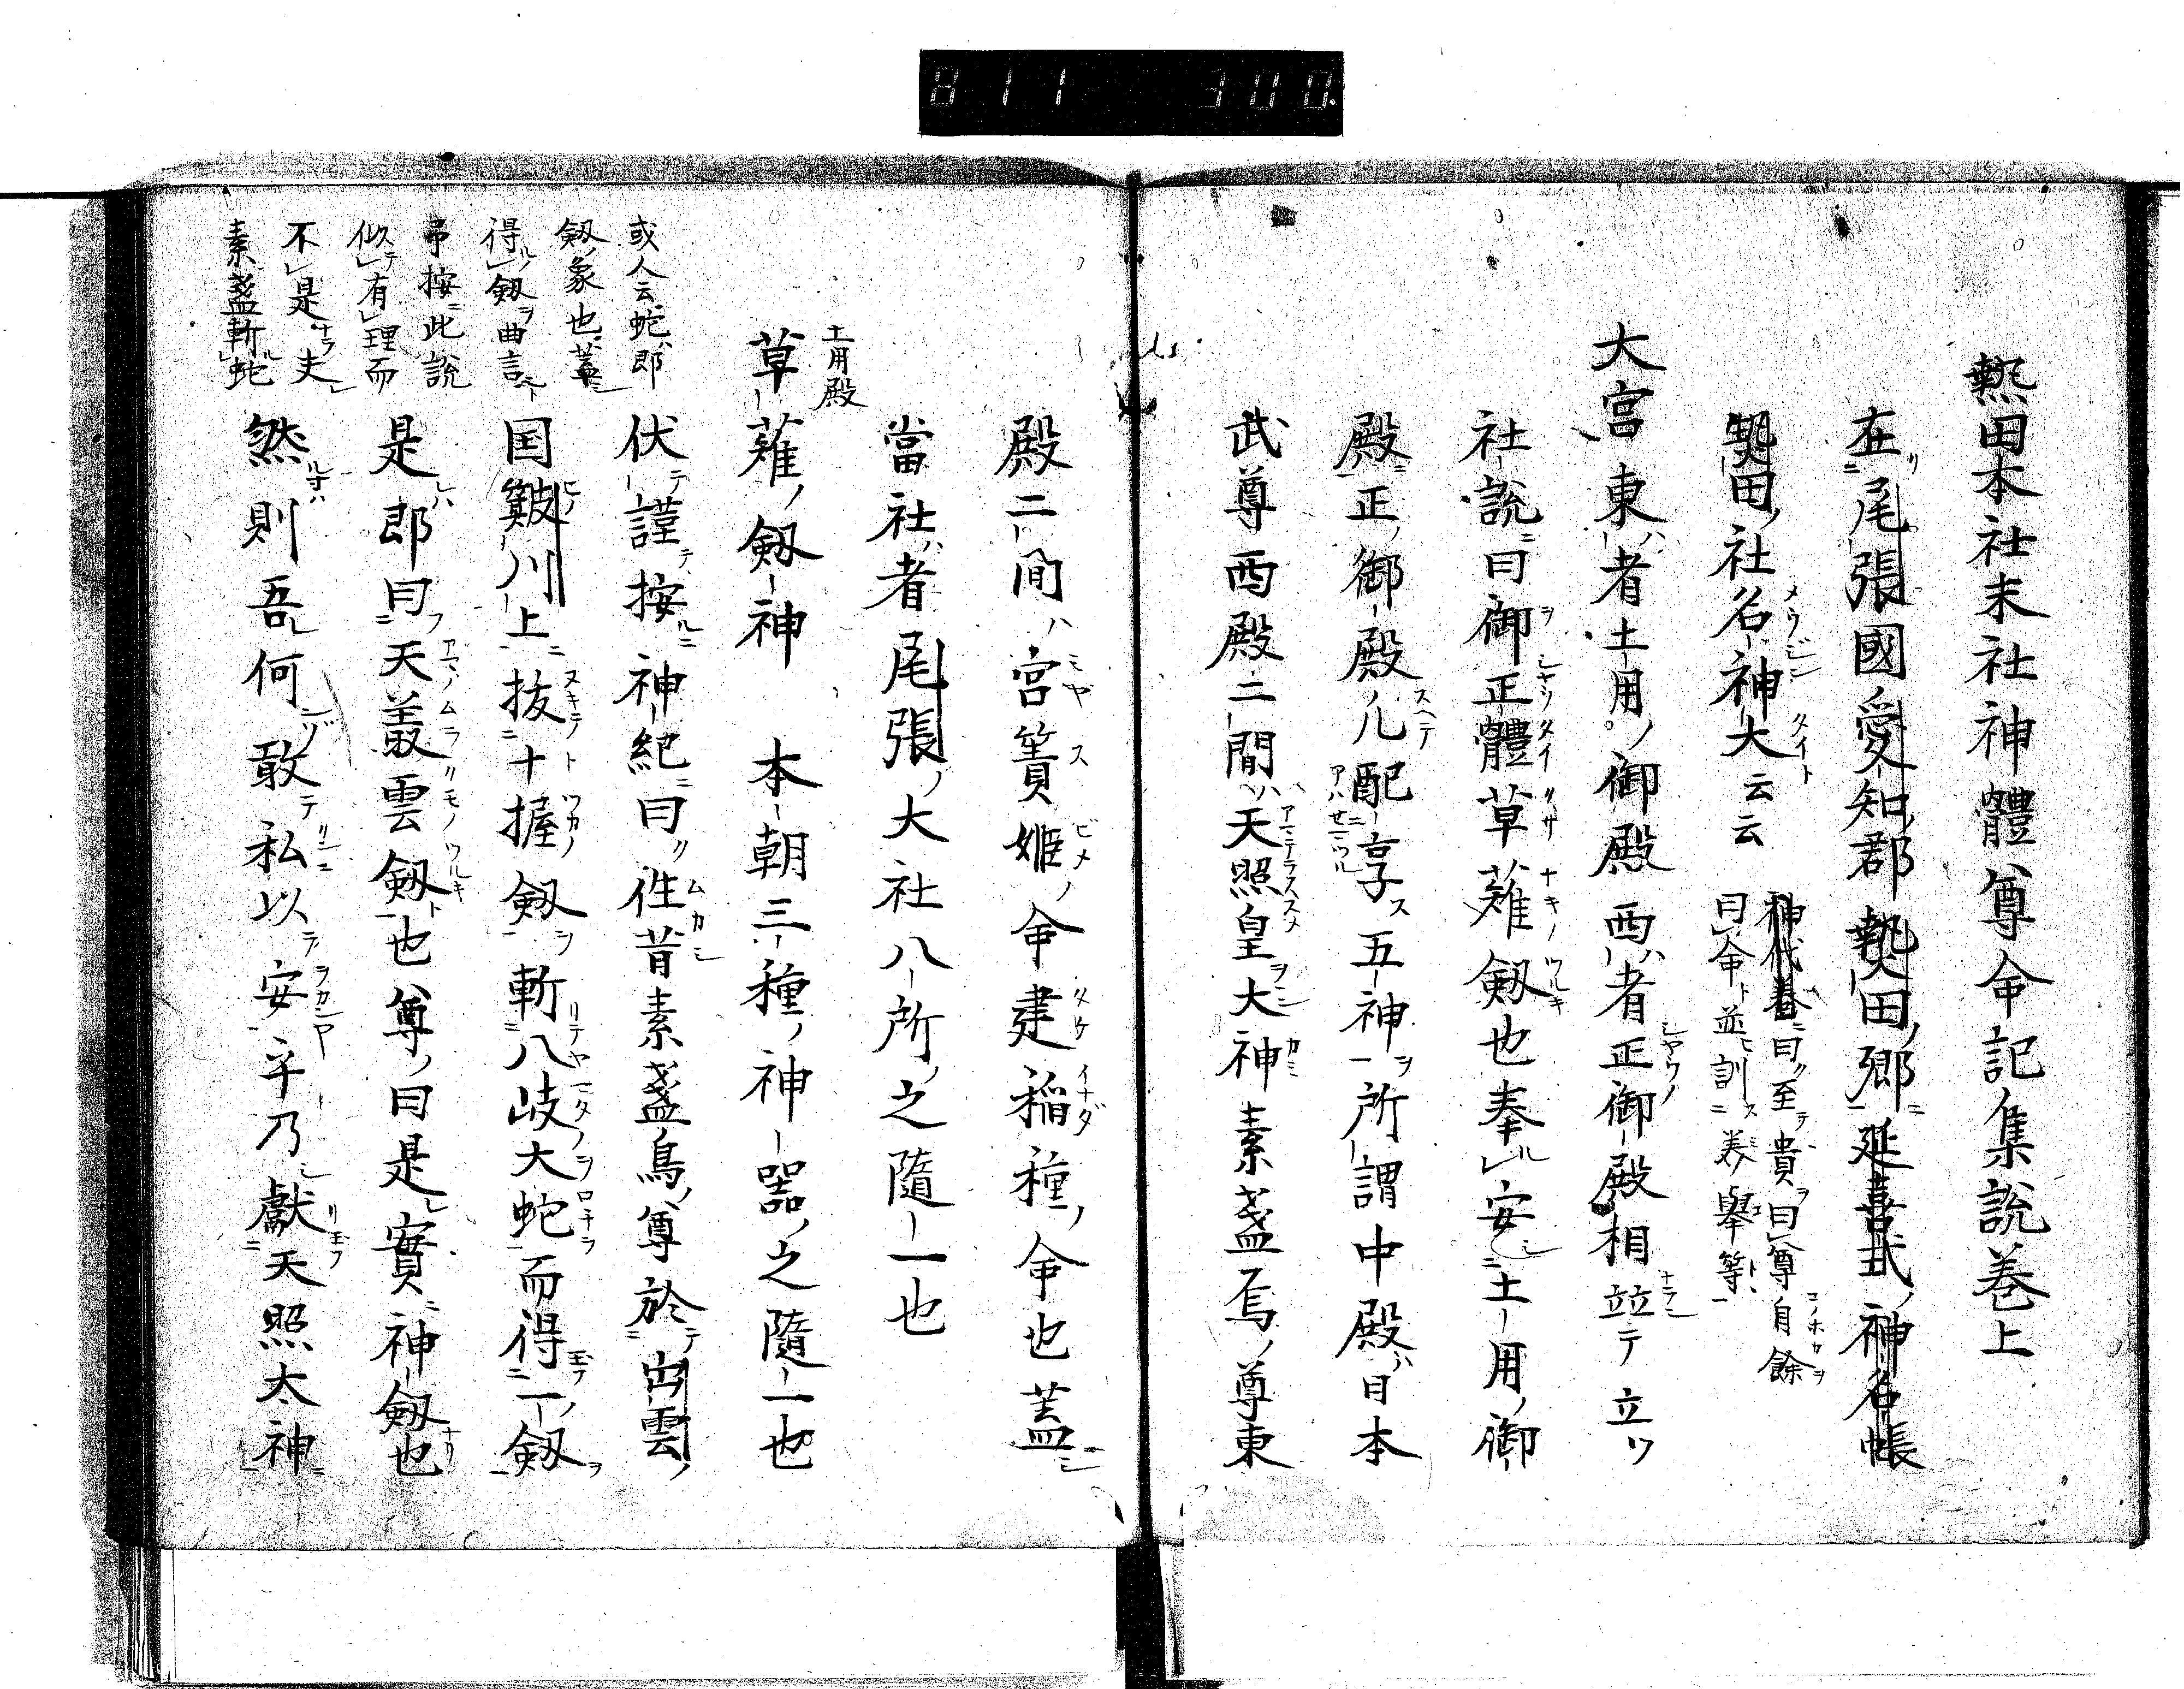 811 300.
熱田本社末社神體尊命記集説巻上
在尾張國愛知郡熱田郷延喜式神名帳
熱田社名神大云云
神代巻曰至貴曰尊自餘
曰命並訓美舉等
大宮東者土用御殿西者正御殿相竝テ立ツ
社説曰御正體草薙劔也奉安土用御
殿正御殿ノ凡配享五神所謂中殿日本
武尊西殿二間天照皇大神素盞烏尊東
殿二間宮簀姫命建稲種命也蓋
當社者尾張大社八所之隨一也
土用殿
草薙劔神　本朝三種神器之隨一也
伏謹按神紀曰徃昔素盞烏尊於出雲
国簸川上抜十握劔斬八岐大蛇而得一劔
是即曰天叢雲劔也尊曰是實神劔也
然則吾何敢私以安乎乃獻天照太神
或人云蛇即
劔象也蓋
得劔ヲ曲言
予按此説
似有理而
不是夫
素盞斬蛇